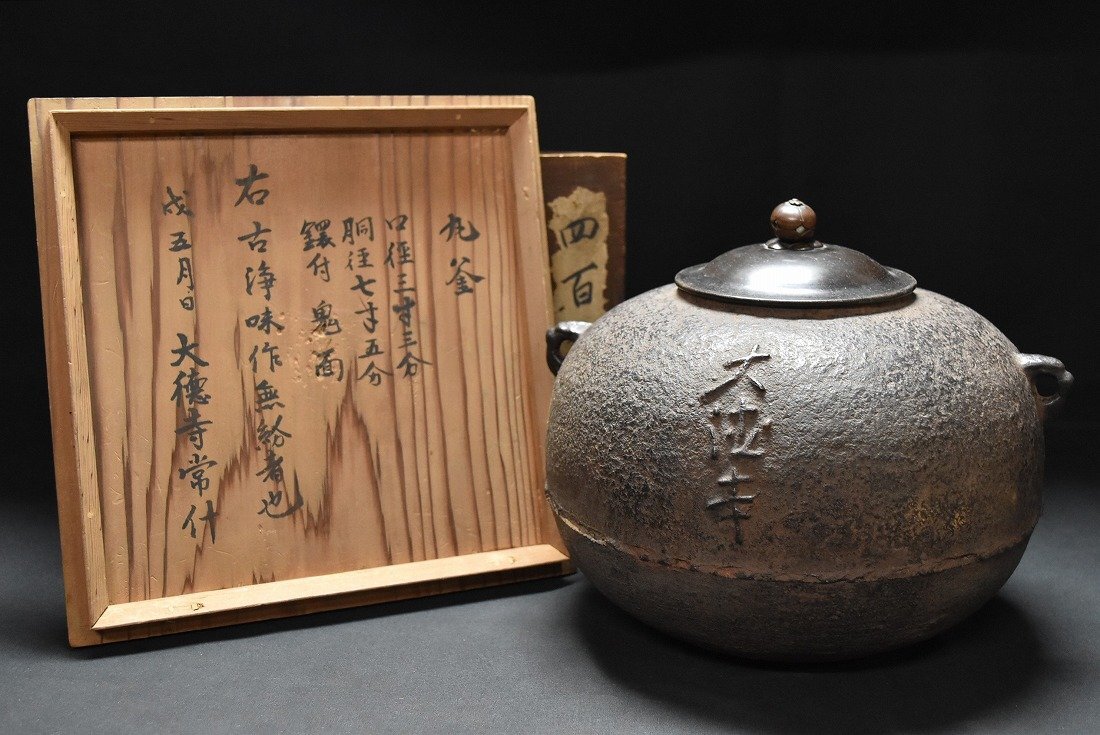 丸釜
口徑三寸三分
胴徑七寸五分
鐶付 鬼面
右古浄味作無紛者也
戌五月日 大徳寺常什
四百
大